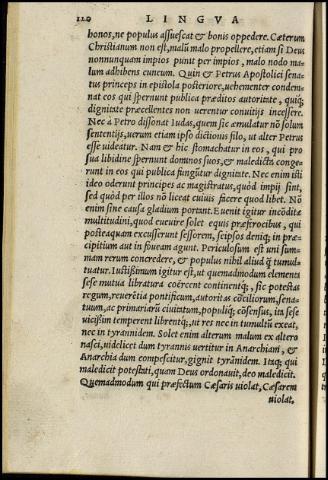 120 LINGVA
bonos, ne populus assuescat & bonis oppedere. Cæterum
Christianum non est, malũ malo propellere, etiam si Deus
nonnunquam impios punit per impios, malo nodo ma-
lum adhibens cuneum. Quin & Petrus Apostolici sena-
tus princeps in epistola posteriore, uehementer condem-
nat eos qui spernunt publica præditos autoritate, quiq;
dignitate præcellentes non uerentur conuitijs incessere.
Nec à Petro dissonat Iudas, quem sic æmulatur nõ solum
sententijs, uerum etiam ipso dictionis filo, ut alter Petrus
esse uideatur. Nam & hic stomachatur in eos, qui pro
sua libidine spernunt dominos suos, & maledicta conge-
runt in eos qui publica fungũtur dignitate. Nec enim isti
ideo oderunt principes ac magistratus, quòd impij sint,
sed quòd per illos nõ liceat cuiuis facere quod libet. Nõ
enim sine causa gladium portant. Euenit igitur incõditæ
multitudini, quod euenire solet equis præfrocibus, qui
posteaquam excusserunt sessorem, seipsos deniq; in præ-
cipitium aut in foueam agunt. Periculosum est uni sum-
mam rerum concredere, & populus nihil aliud q̃ tumul-
tuatur. Iustissimum igitur est, ut quemadmodum elementa
sese mutua libratura coërcent continentq;, sic potestas
regum, reuerẽtia pontificum, autoritas cõciliorum, sena-
tuum, ac primariorũ ciuitatum, populiq; cõsensus, ita sese
uicißim temperent librentq;, ut res nec in tumultũ exeat,
nec in tyrannidem. Solet enim alterum malum ex altero
nasci, uidelicet dum tyrannis uertitur in Anarchiam, &
Anarchia dum compescitur, gignit tyrãnidem. Itaq; qui
maledicit potestati, quam Deus ordonauit, deo maledicit.
Quemadmodum qui præfectum Cæsaris uiolat, Cæsarem
uiolat,